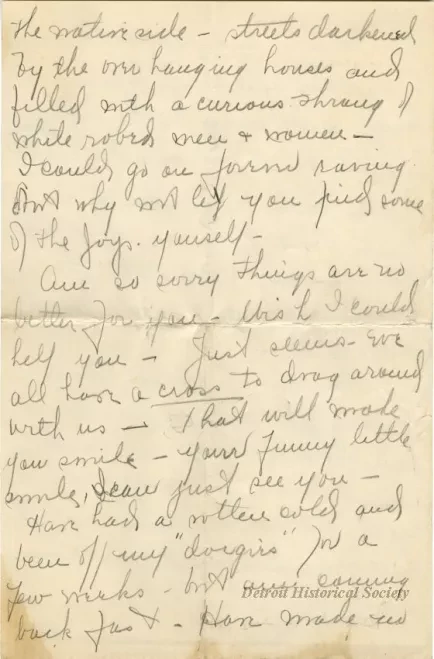 the native side – streets darkened
by the over hanging houses and
filled with a curious throng of
white robed men + women –
I could go on forever raving
but why not let you find some
of the joys. yourself –
Am so sorry things are no
better for you – Wish I could
help you – Just seems we
all have a cross to drag around
with us – That will make
you smile – your funny little
smile, I can just see you –
Have had a rotten cold and
been off my "doigirs" for a
few weeks – but am coming
back fast – Have made no
Detroit Historical Society